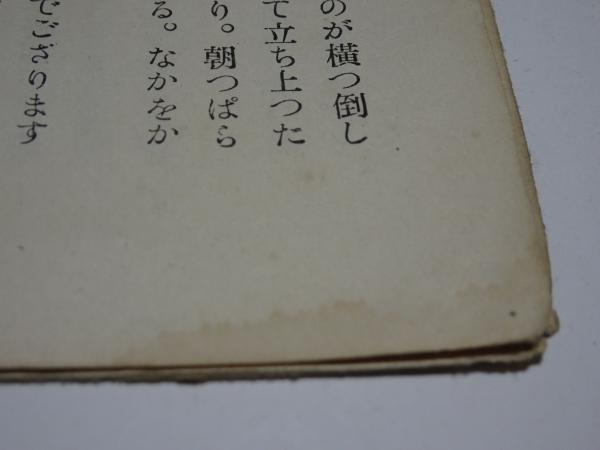 のが横つ倒し
て立ち上つた
り。朝つぱら
る。なかをか
でござります